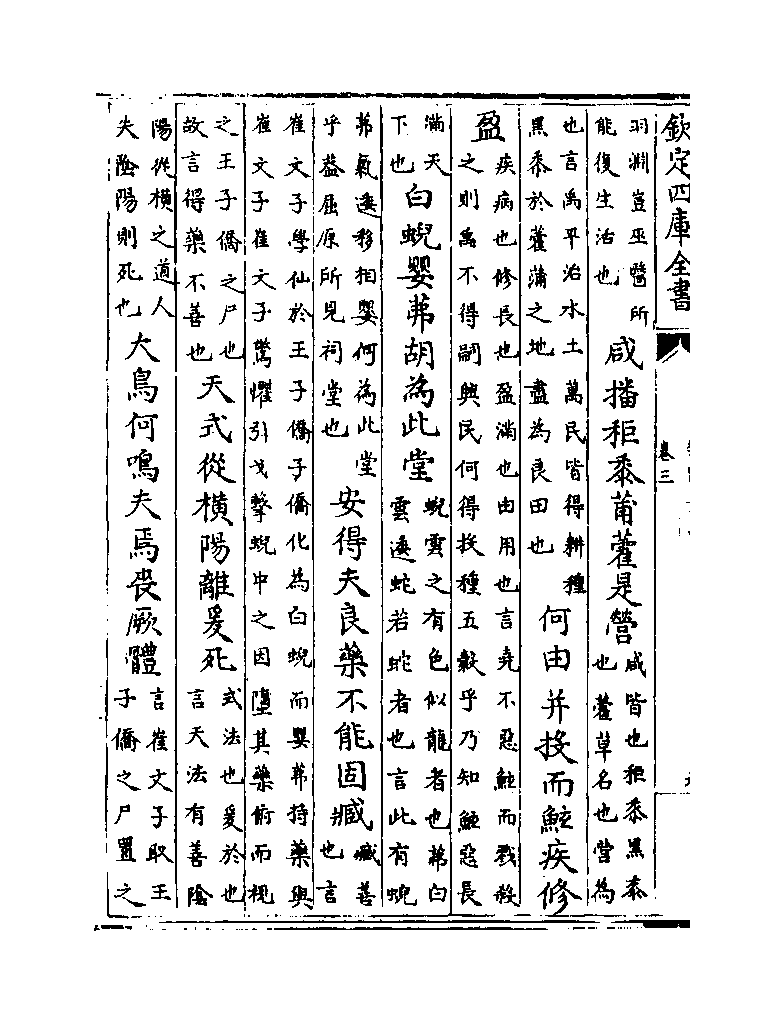 欽定四庫全書
卷三
羽淵豈巫醫所
能復生活也
咸播秬黍莆雚是營
咸皆也秬黍黑黍
也雚草名也營為
也言禹平治水土萬民皆得耕種
黑黍於雚蒲之地盡為良田也
何由并投而鮌疾修
盈
疾病也修長也盈滿也由用也言堯不惡鮌而戮殺
之則禹不得嗣興民何得投種五穀乎乃知鮌惡長
滿天
下也
白蜺嬰茀胡為此堂
蜺雲之有色似龍者也茀白
雲逶蛇若蛇者也言此有蜺
茀氣逶移相嬰何為此堂
乎葢屈原所見祠堂也
安得夫良藥不能固臧
臧善
也言
崔文子學仙於王子僑子僑化為白蜺而嬰茀持藥與
崔文子崔文子驚懼引戈擊蜺中之因墮其藥俯而視
之王子僑之尸也
故言得藥不善也
天式從橫陽離爰死
式法也爰於也
言天法有善陰
陽從橫之道人
失陰陽則死也
大鳥何鳴夫焉喪厥體
言崔文子取王
子僑之尸置之